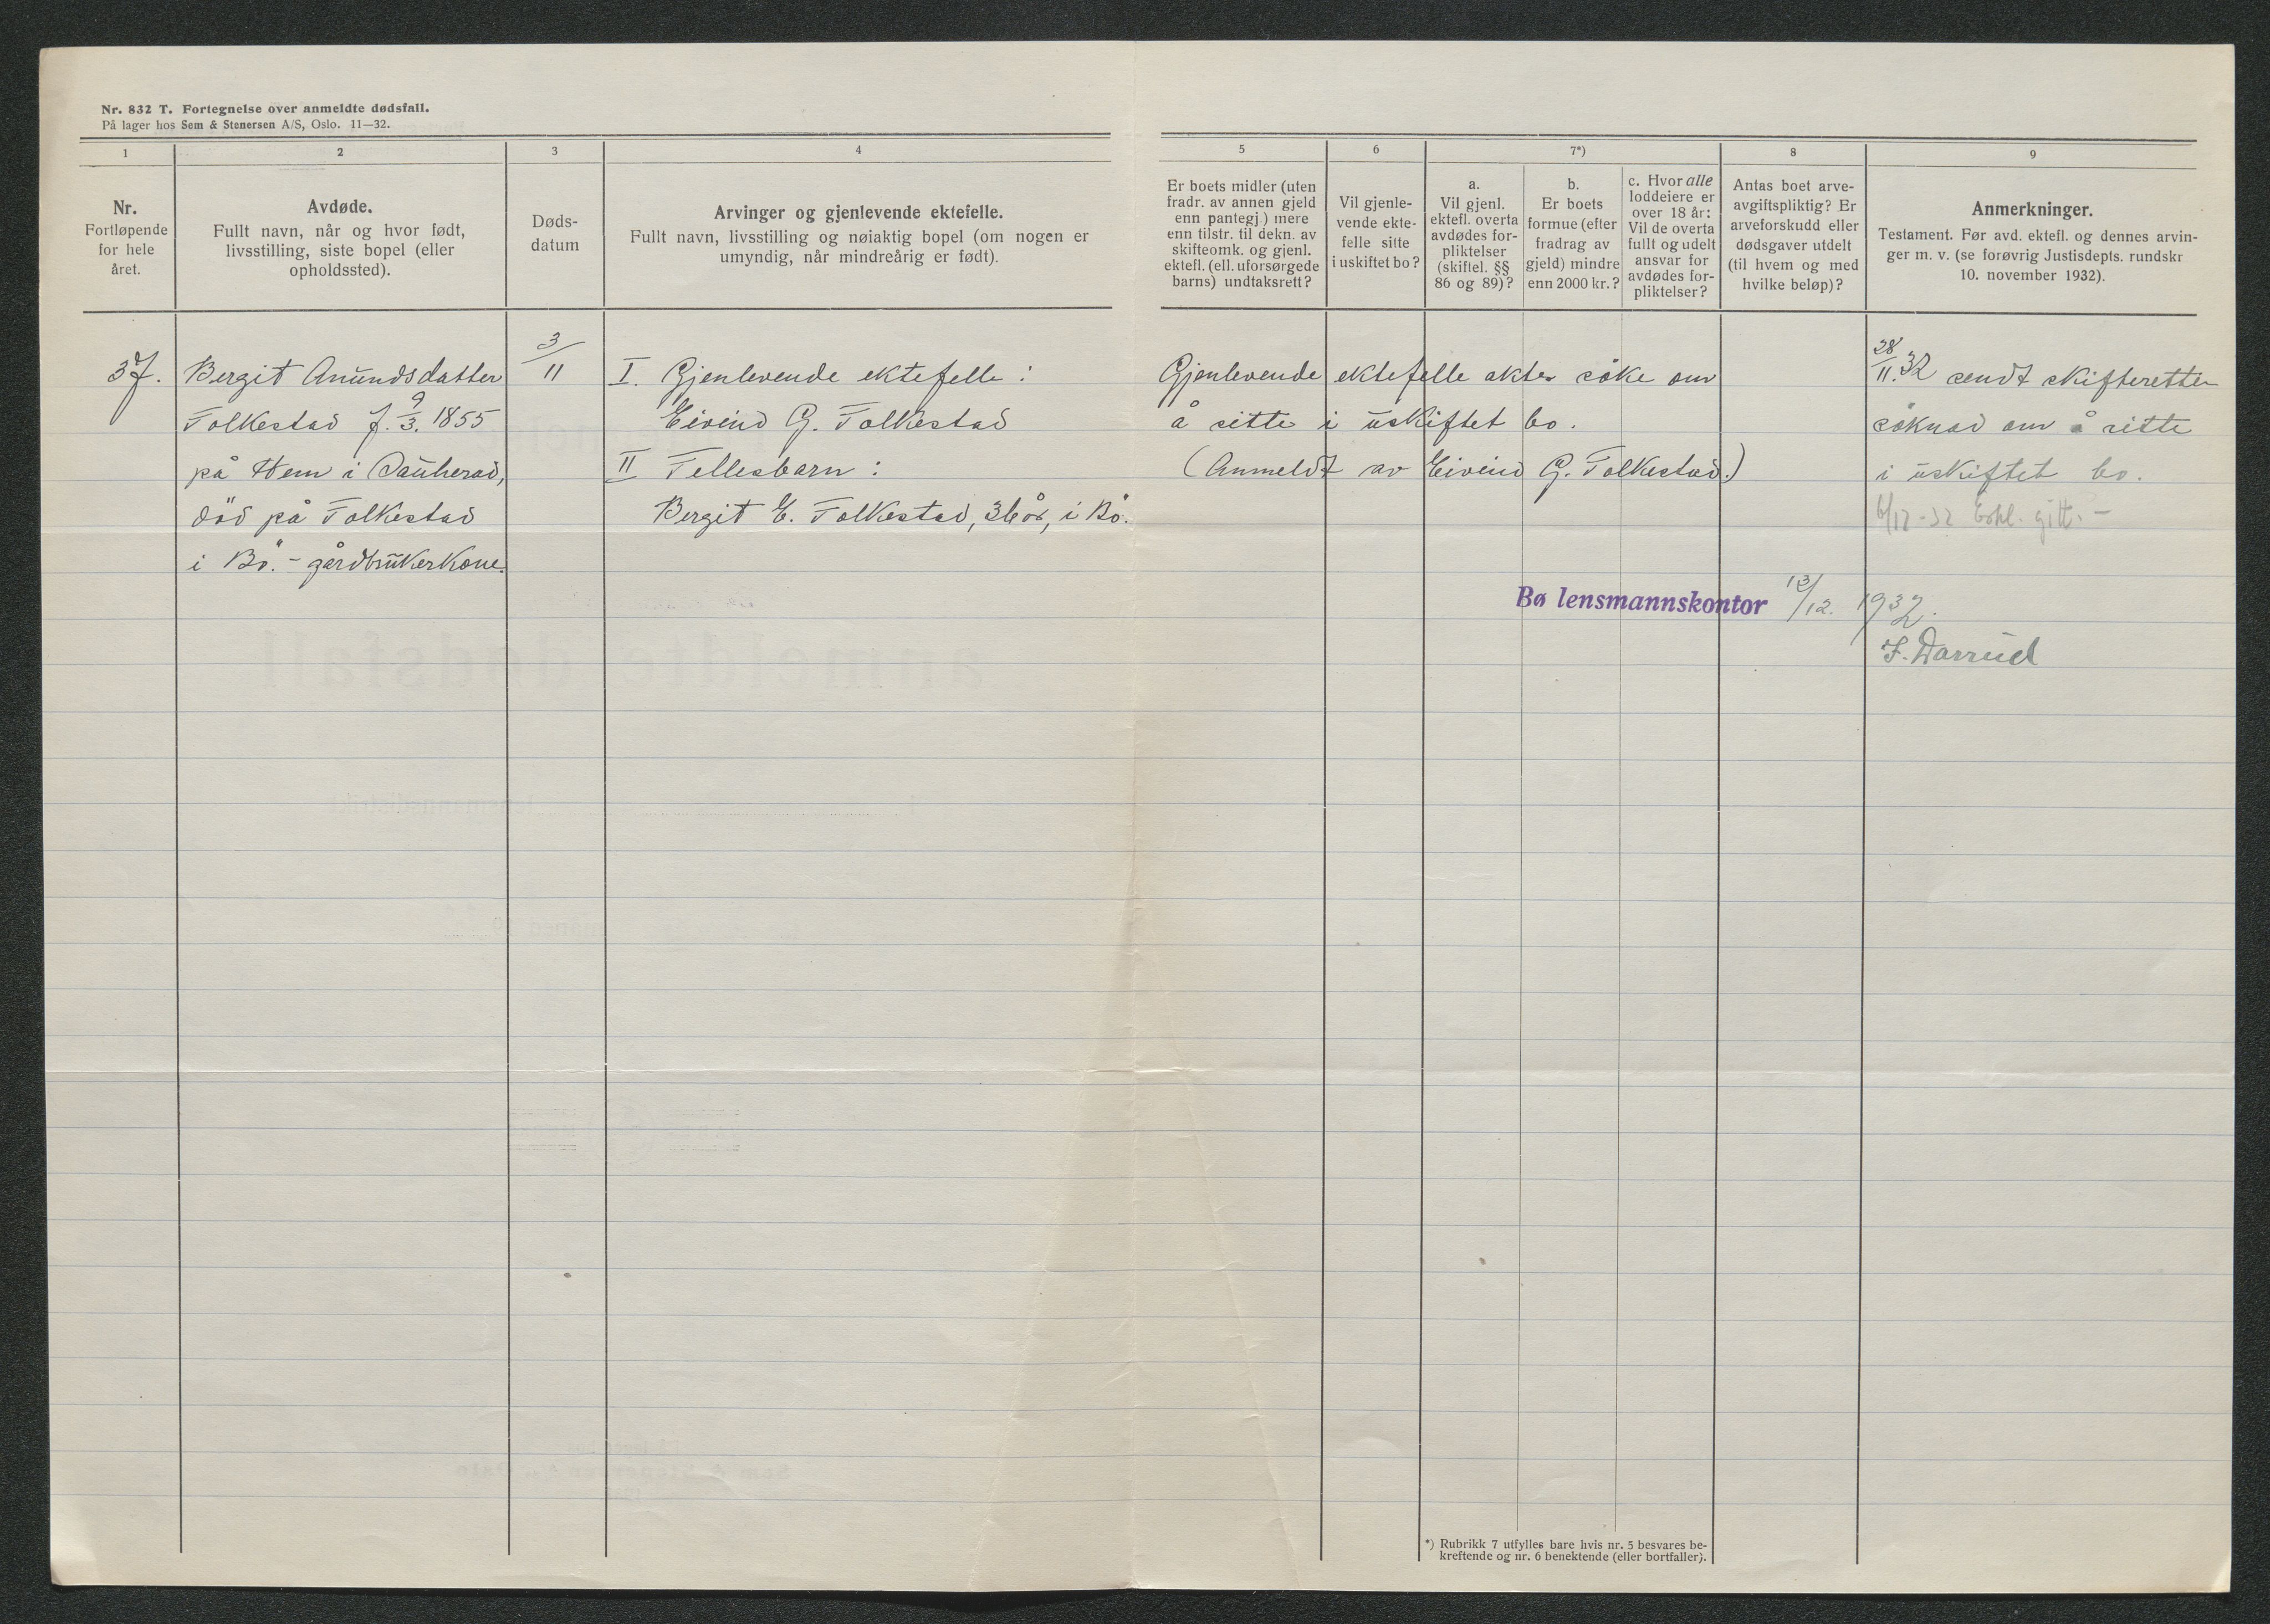 Nr. 832 T. Fortegnelse over anmeldte dødsfall.
På lager hos Sem & Stenersen A/S, Oslo. 11—32.
1
2
3
4
5
6
7*)
8
9
Nr.
Fortløpende
for hele
året.
Avdøde.
Fullt navn, når og hvor født,
livsstilling, siste bopel (eller
opholdssted).
Døds-
datum
Arvinger og gjenlevende ektefelle.
Fullt navn, livsstilling og nøiaktig bopel (om nogen er
umyndig, når mindreårig er født).
Er boets midler (uten
fradr. av annen gjeld
enn pantegj.) mere
enn tilstr. til dekn. av
skifteomk. og gjenl.
ektefl. (ell. uforsørgede
barns) undtaksrett?
Vil gjenle-
vende ekte-
felle sitte
i uskiftet bo?
a.
Vil gjenl.
ektefl. overta
avdødes for-
pliktelser
(skiftel. §§
86 og 89)?
b.
Er boets
formue (efter
fradrag av
gjeld) mindre
enn 2000 kr.?
c. Hvor alle
loddeiere er
over 18 år:
Vil de overta
fullt og udelt
ansvar for
avdødes for-
pliktelser?
Antas boet arve-
avgiftspliktig? Er
arveforskudd eller
dødsgaver utdelt
(til hvem og med
hvilke beløp)?
Anmerkninger.
Testament. Før avd. ektefl. og dennes arvin-
ger m. v. (se forøvrig Justisdepts. rundskr
10. november 1932).
37.
Bergit Anundsdatter
Folkestad f. 9/3. 1855
på Hem i Sauherad,
död på Folkestad
i Bö. - gårdbrukerkone.
3/11
I. Gjenlevende ektefelle:
Eivind G. Folkestad
II Fellesbarn:
Bergit E. Folkestad, 36 år, i Bö.
Gjenlevende ektefelle akter söke om
å sitte i uskiftet bo.
(Anmeldt av Eivind G. Folkestad.)
28/11.32 sendt skifteretten
söknad om å sitte
i uskiftet bo.
6/12-32 Bohl. gitt. -
Bø lensmannskontor 13/12. 1932.
F. Darrud
*) Rubrikk 7 utfylles bare hvis nr. 5 besvares be-
kreftende og nr. 6 benektende (eller bortfaller).